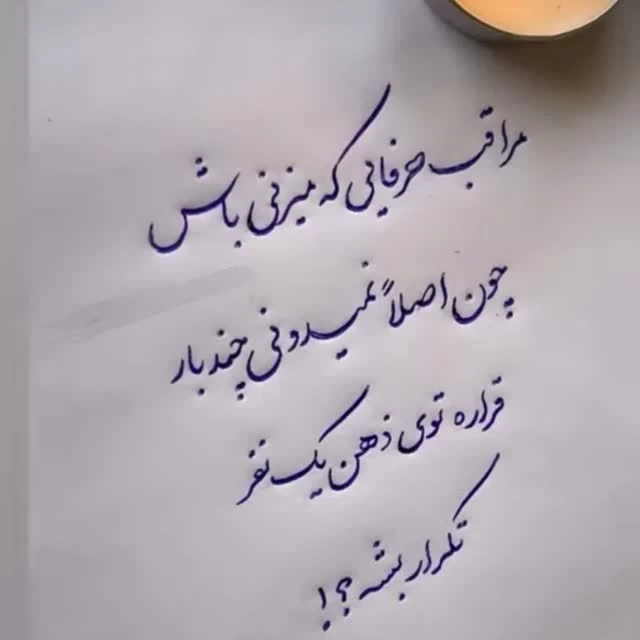 مراقب حرفایی که میزنی باش
چون اصلاً نمیدونی چند بار
قراره توی ذهن یک نفر
تکرار بشه؟!